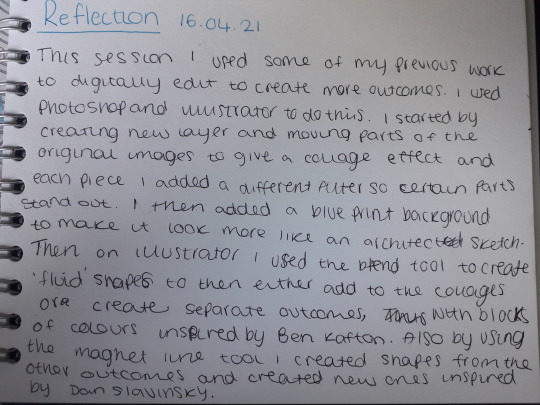 Reflection 16.04.21
This session I used some of my previous work
to digitally edit to create more outcomes. I used
photoshop and illustrator to do this. I started by
creating new layer and moving parts of the
original images to give a collage effect and
each piece I added a different filter so certain parts
stand out. I then added a blue print background
to make it look more like an architect sketch.
Then on illustrator I used the blend tool to create
'fluid' shapes to then either add to the collages
ore create separate outcomes, with blocks
of colours inspired by Ben Kafton. Also by using
the magnet line tool I created shapes from the
other outcomes and created new ones inspired
by Dan Slavinsky.